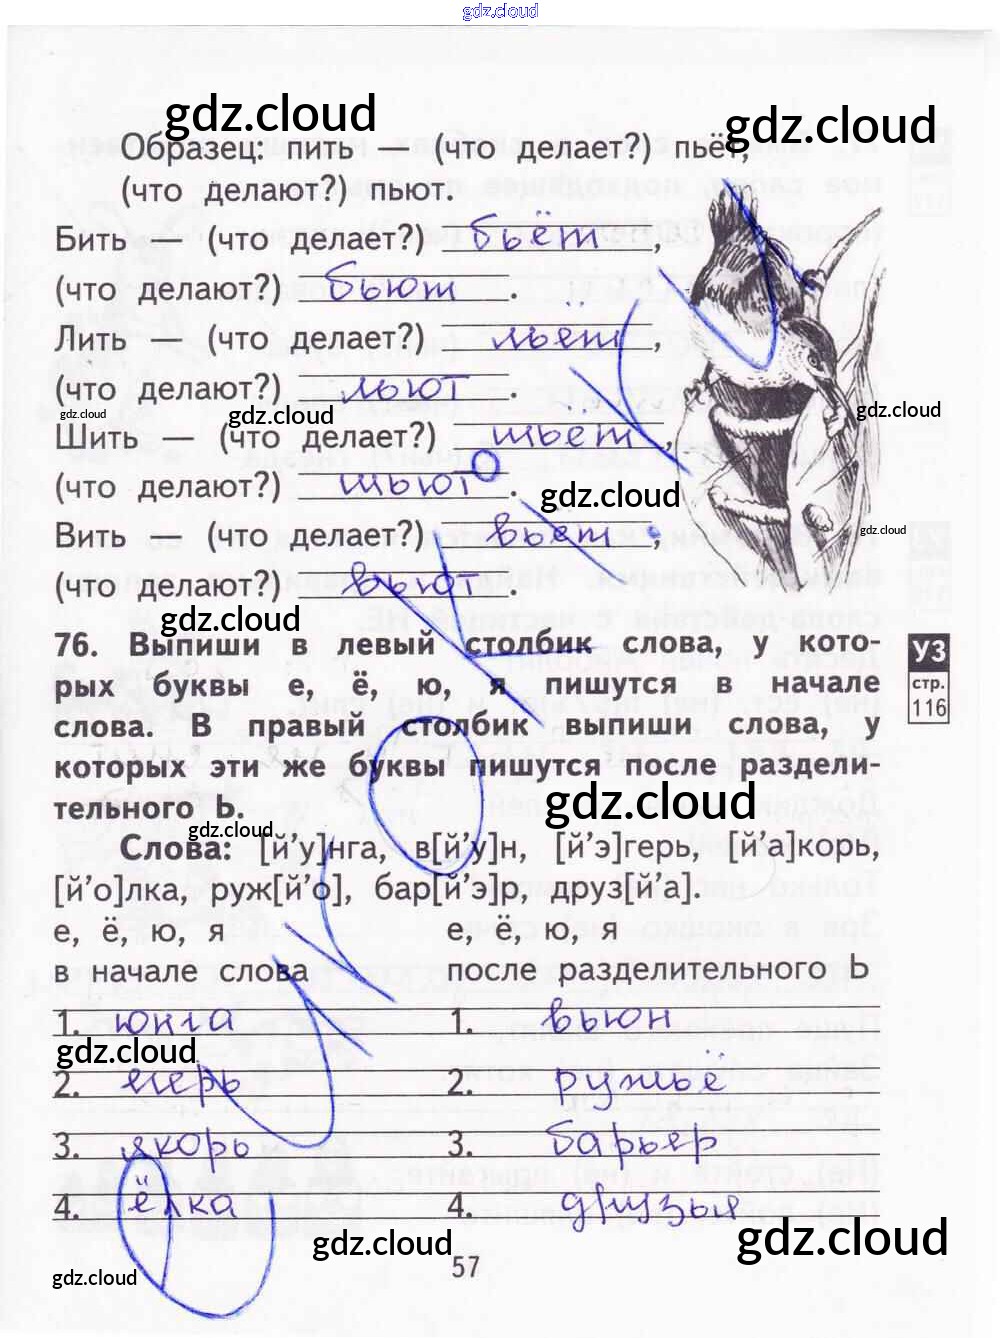 gdz.cloud
gdz.cloud
gdz.cloud
Образец: пить — (что делает?) пьёт,
(что делают?) пьют.
Бить — (что делает?) бьёт,
(что делают?) бьют.
Лить — (что делает?) льёт,
(что делают?) льют.
gdz.cloud gdz.cloud gdz.cloud
Шить — (что делает?) шьёт,
(что делают?) шьют.
gdz.cloud
Вить — (что делает?) вьёт,
gdz.cloud
(что делают?) вьют.
gdz.cloud
76. Выпиши в левый столбик слова, у кото-
рых буквы е, ё, ю, я пишутся в начале
слова. В правый столбик выпиши слова, у
которых эти же буквы пишутся после раздели-
тельного Ь.
УЗ
стр.
116
gdz.cloud
gdz.cloud
Слова: [й'у]нга, в[й'у]н, [й'э]герь, [й'а]корь,
[й'о]лка, руж[й'о], бар[й'э]р, друз[й'а].
е, ё, ю, я е, ё, ю, я
в начале слова после разделительного Ь
1. юнга 1. вьюн
gdz.cloud
2. егерь 2. ружьё
3. якорь 3. барьер
4. ёлка 4. друзья
gdz.cloud gdz.cloud
57
gdz.cloud